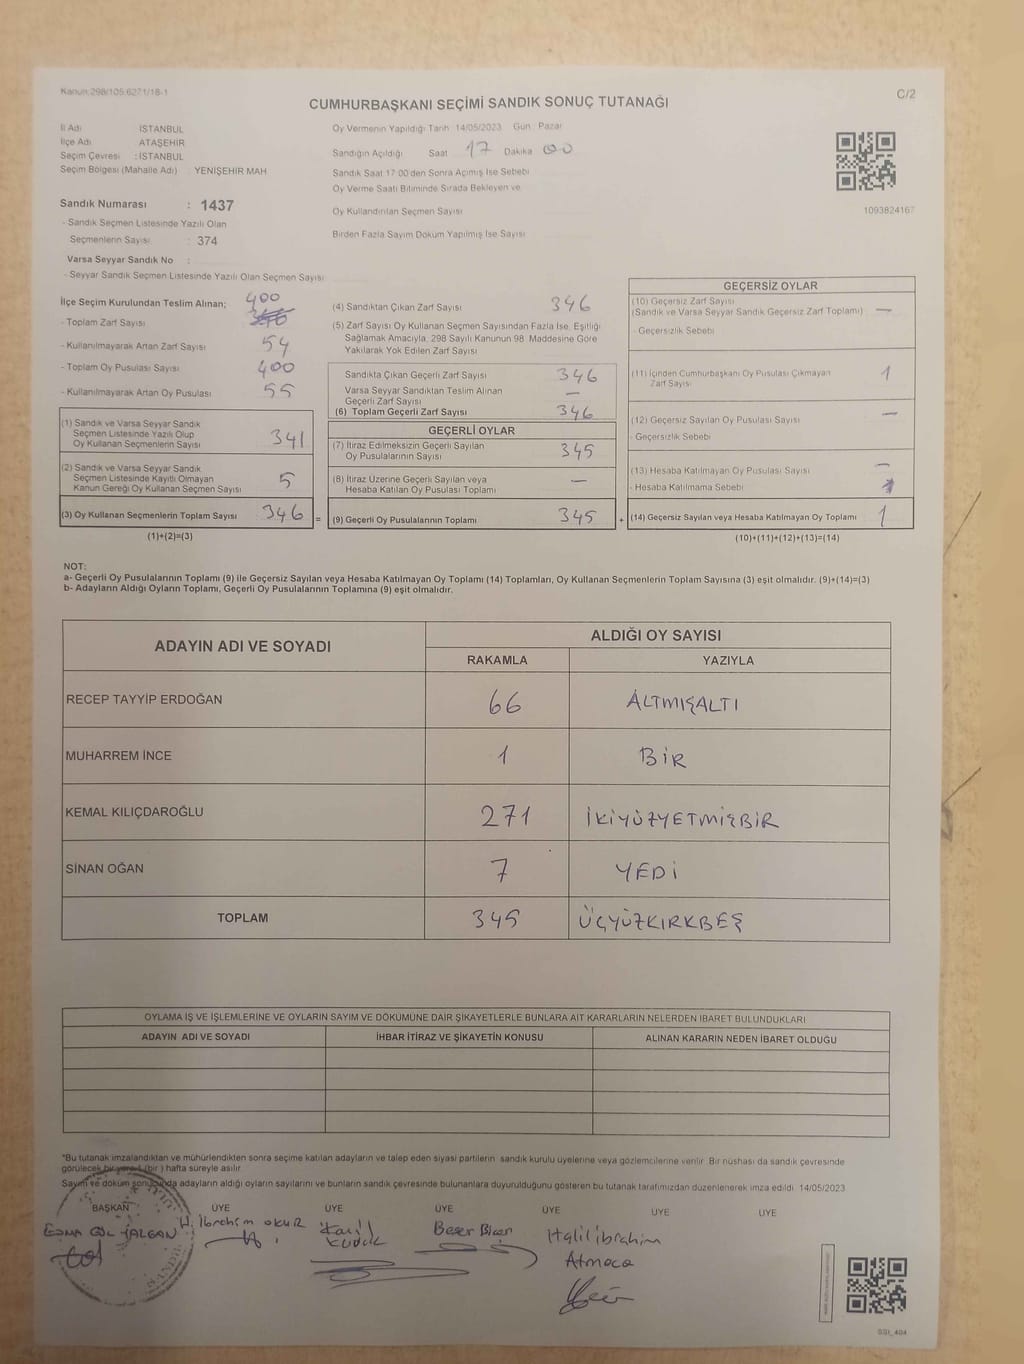 Kanun:298/105 6271/18-1
C/2
CUMHURBAŞKANI SEÇİMİ SANDIK SONUÇ TUTANAĞI
İl Adı : İSTANBUL
İlçe Adı : ATAŞEHİR
Seçim Çevresi : İSTANBUL
Seçim Bölgesi (Mahalle Adı) : YENİŞEHİR MAH
Sandık Numarası : 1437
- Sandık Seçmen Listesinde Yazılı Olan
Seçmenlerin Sayısı : 374
Varsa Seyyar Sandık No :
- Seyyar Sandık Seçmen Listesinde Yazılı Olan Seçmen Sayısı
Oy Vermenin Yapıldığı Tarih 14/05/2023 Gün Pazar
Sandığın Açıldığı Saat 17 Dakika 00
Sandık Saat 17 00'den Sonra Açılmış İse Sebebi
Oy Verme Saati Bitiminde Sırada Bekleyen ve
Oy Kullandırılan Seçmen Sayısı
Birden Fazla Sayım Döküm Yapılmış İse Sayısı
1093824167
İlçe Seçim Kurulundan Teslim Alınan; 400
- Toplam Zarf Sayısı 346
- Kullanılmayarak Artan Zarf Sayısı 54
- Toplam Oy Pusulası Sayısı 400
- Kullanılmayarak Artan Oy Pusulası 55
(1) Sandık ve Varsa Seyyar Sandık
Seçmen Listesinde Yazılı Olup
Oy Kullanan Seçmenlerin Sayısı 341
(2) Sandık ve Varsa Seyyar Sandık
Seçmen Listesinde Kayıtlı Olmayan
Kanun Gereği Oy Kullanan Seçmen Sayısı 5
(3) Oy Kullanan Seçmenlerin Toplam Sayısı 346 =
(1)+(2)=(3)
(4) Sandıktan Çıkan Zarf Sayısı 346
(5) Zarf Sayısı Oy Kullanan Seçmen Sayısından Fazla İse, Eşitliği
Sağlamak Amacıyla, 298 Sayılı Kanunun 98. Maddesine Göre
Yakılarak Yok Edilen Zarf Sayısı
Sandıkta Çıkan Geçerli Zarf Sayısı 346
Varsa Seyyar Sandıktan Teslim Alınan
Geçerli Zarf Sayısı —
(6) Toplam Geçerli Zarf Sayısı 346
GEÇERLİ OYLAR
(7) İtiraz Edilmeksizin Geçerli Sayılan
Oy Pusulalarının Sayısı 345
(8) İtiraz Üzerine Geçerli Sayılan veya
Hesaba Katılan Oy Pusulası Toplamı —
(9) Geçerli Oy Pusulalarının Toplamı 345 +
GEÇERSİZ OYLAR
(10) Geçersiz Zarf Sayısı
(Sandık ve Varsa Seyyar Sandık Geçersiz Zarf Toplamı) —
- Geçersizlik Sebebi
(11) İçinden Cumhurbaşkanı Oy Pusulası Çıkmayan
Zarf Sayısı 1
(12) Geçersiz Sayılan Oy Pusulası Sayısı —
- Geçersizlik Sebebi
(13) Hesaba Katılmayan Oy Pusulası Sayısı —
- Hesaba Katılmama Sebebi
(14) Geçersiz Sayılan veya Hesaba Katılmayan Oy Toplamı 1
(10)+(11)+(12)+(13)=(14)
NOT:
a- Geçerli Oy Pusulalarının Toplamı (9) ile Geçersiz Sayılan veya Hesaba Katılmayan Oy Toplamı (14) Toplamları, Oy Kullanan Seçmenlerin Toplam Sayısına (3) eşit olmalıdır. (9)+(14)=(3)
b- Adayların Aldığı Oyların Toplamı, Geçerli Oy Pusulalarının Toplamına (9) eşit olmalıdır.
ADAYIN ADI VE SOYADI
ALDIĞI OY SAYISI
RAKAMLA YAZIYLA
RECEP TAYYİP ERDOĞAN 66 ALTMIŞALTI
MUHARREM İNCE 1 BİR
KEMAL KILIÇDAROĞLU 271 İKİYÜZYETMİŞBİR
SİNAN OĞAN 7 YEDİ
TOPLAM 345 ÜÇYÜZKIRKBEŞ
OYLAMA İŞ VE İŞLEMLERİNE VE OYLARIN SAYIM VE DÖKÜMÜNE DAİR ŞİKAYETLERLE BUNLARA AİT KARARLARIN NELERDEN İBARET BULUNDUKLARI
ADAYIN ADI VE SOYADI İHBAR İTİRAZ VE ŞİKAYETİN KONUSU ALINAN KARARIN NEDEN İBARET OLDUĞU
*Bu tutanak imzalandıktan ve mühürlendikten sonra seçime katılan adayların ve talep eden siyasi partilerin sandık kurulu üyelerine veya gözlemcilerine verilir. Bir nüshası da sandık çevresinde
görülecek bir yere 1 (bir) hafta süreyle asılır.
Sayım ve döküm sonucunda adayların aldığı oyların sayılarını ve bunların sandık çevresinde bulunanlara duyurulduğunu gösteren bu tutanak tarafımızdan düzenlenerek imza edildi. 14/05/2023
BAŞKAN ÜYE ÜYE ÜYE ÜYE ÜYE
H. İbrahim OKUR
Halil ibrahim
Atmaca
SSI_404